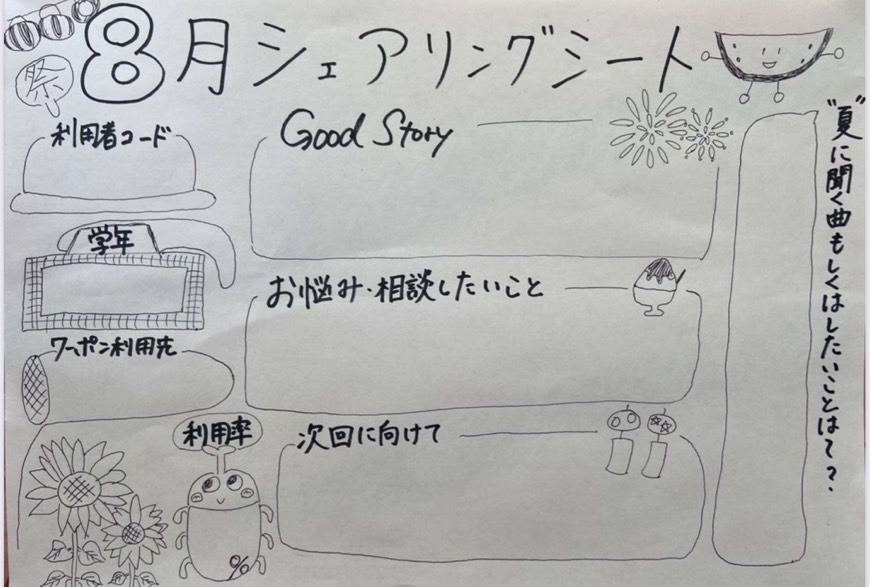 8月シェアリングシート
祭
利用者コード
Good Story
"夏"に聞く曲もしくはしたいことは??
学年
お悩み・相談したいこと
クーポン利用先
利用率
次回に向けて
%